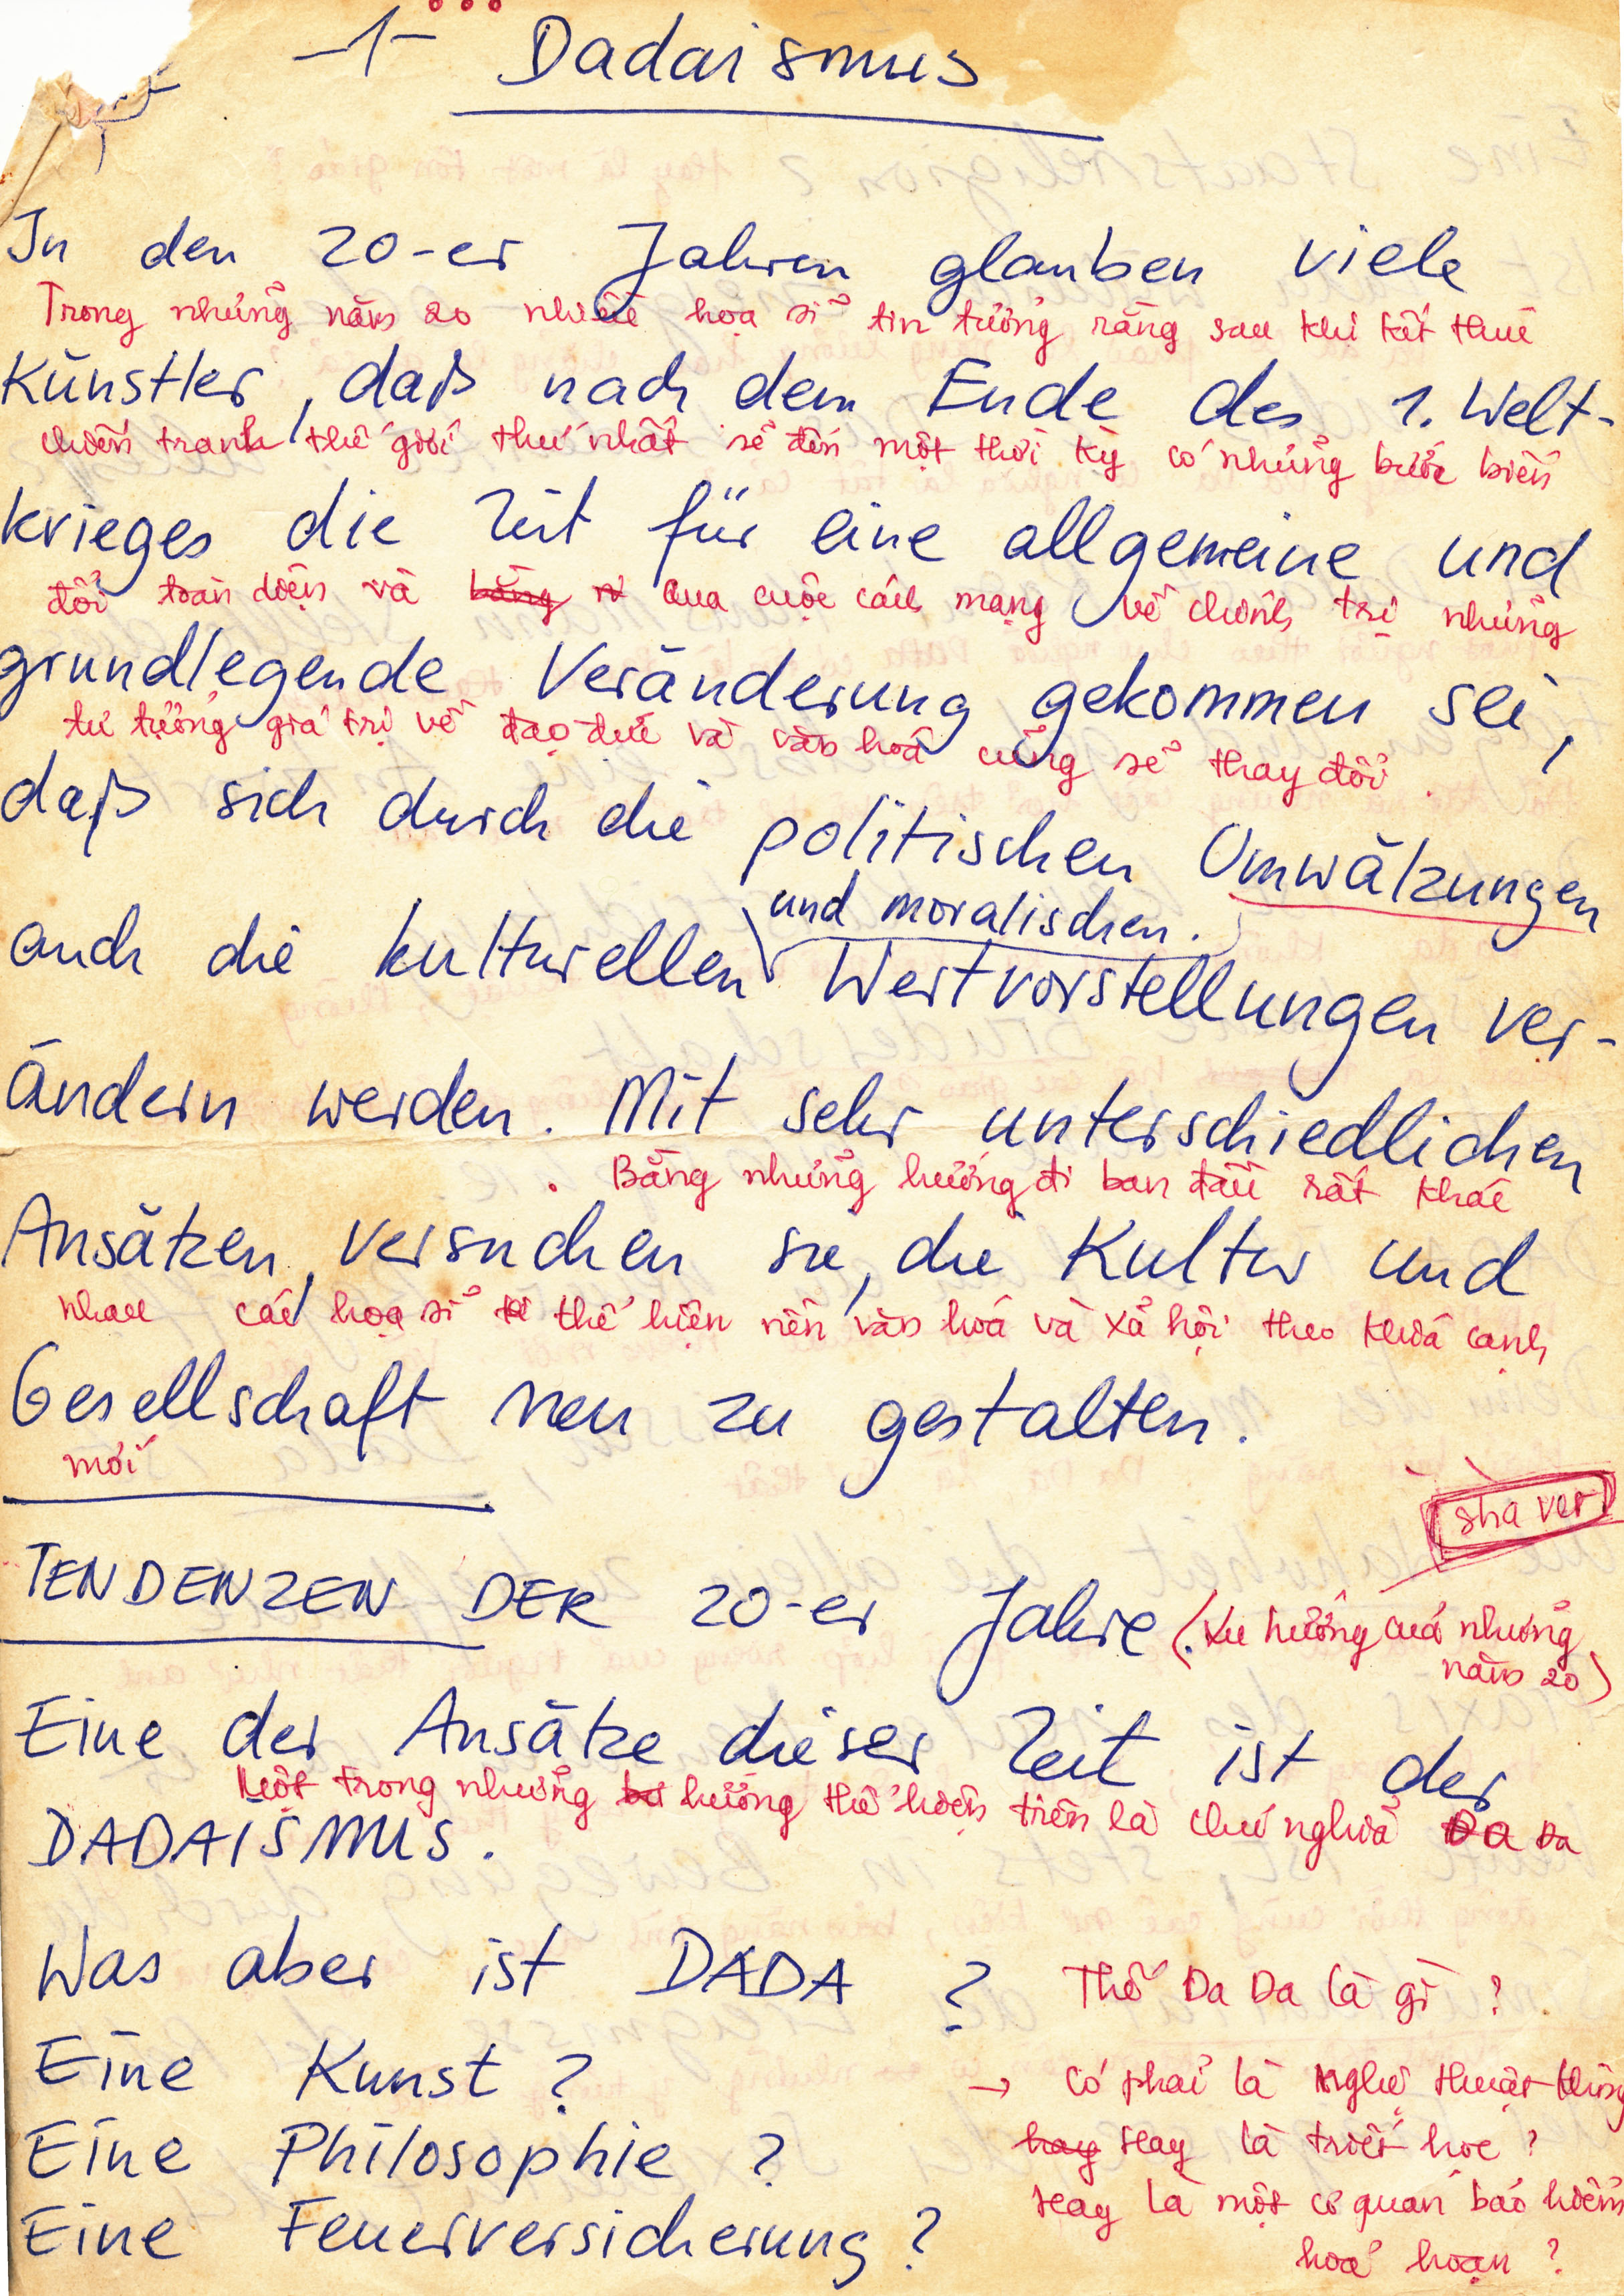 -1- Dadaismus
In den 20-er Jahren glauben viele
Trong những năm 20 nhiều họa sĩ tin tưởng rằng sau khi kết thúc
Künstler, daß nach dem Ende des 1. Welt-
chiến tranh thế giới thứ nhất sẽ đến một thời kỳ có những bước biến
krieges die Zeit für eine allgemeine und
đổi toàn diện và bằng qua cuộc cách mạng về chính trị những
grundlegende Veränderung gekommen sei,
tư tưởng giá trị về đạo đức và văn hoá cũng sẽ thay đổi.
daß sich durch die politischen Umwälzungen
und moralischen.
auch die kulturellen Wertvorstellungen ver-
ändern werden. Mit sehr unterschiedlichen
. Bằng những hướng đi ban đầu rất khác
Ansätzen, versuchen sie, die Kultur und
nhau các họa sĩ thể hiện nền văn hoá và xã hội theo khía cạnh
Gesellschaft neu zu gestalten.
mới
sha ver
TENDENZEN DER 20-er Jahre (Xu hướng của những
năm 20)
Eine der Ansätze dieser Zeit ist der
Một trong những hướng thể hiện trên là chủ nghĩa Da Da
DADAISMUS.
Was aber ist DADA ? Thế Da Da là gì ?
Eine Kunst ? → Có phải là nghệ thuật không
Eine Philosophie ? hay Hay là triết học ?
Hay là một cơ quan bảo hiểm
Eine Feuerversicherung ?
hoả hoạn ?